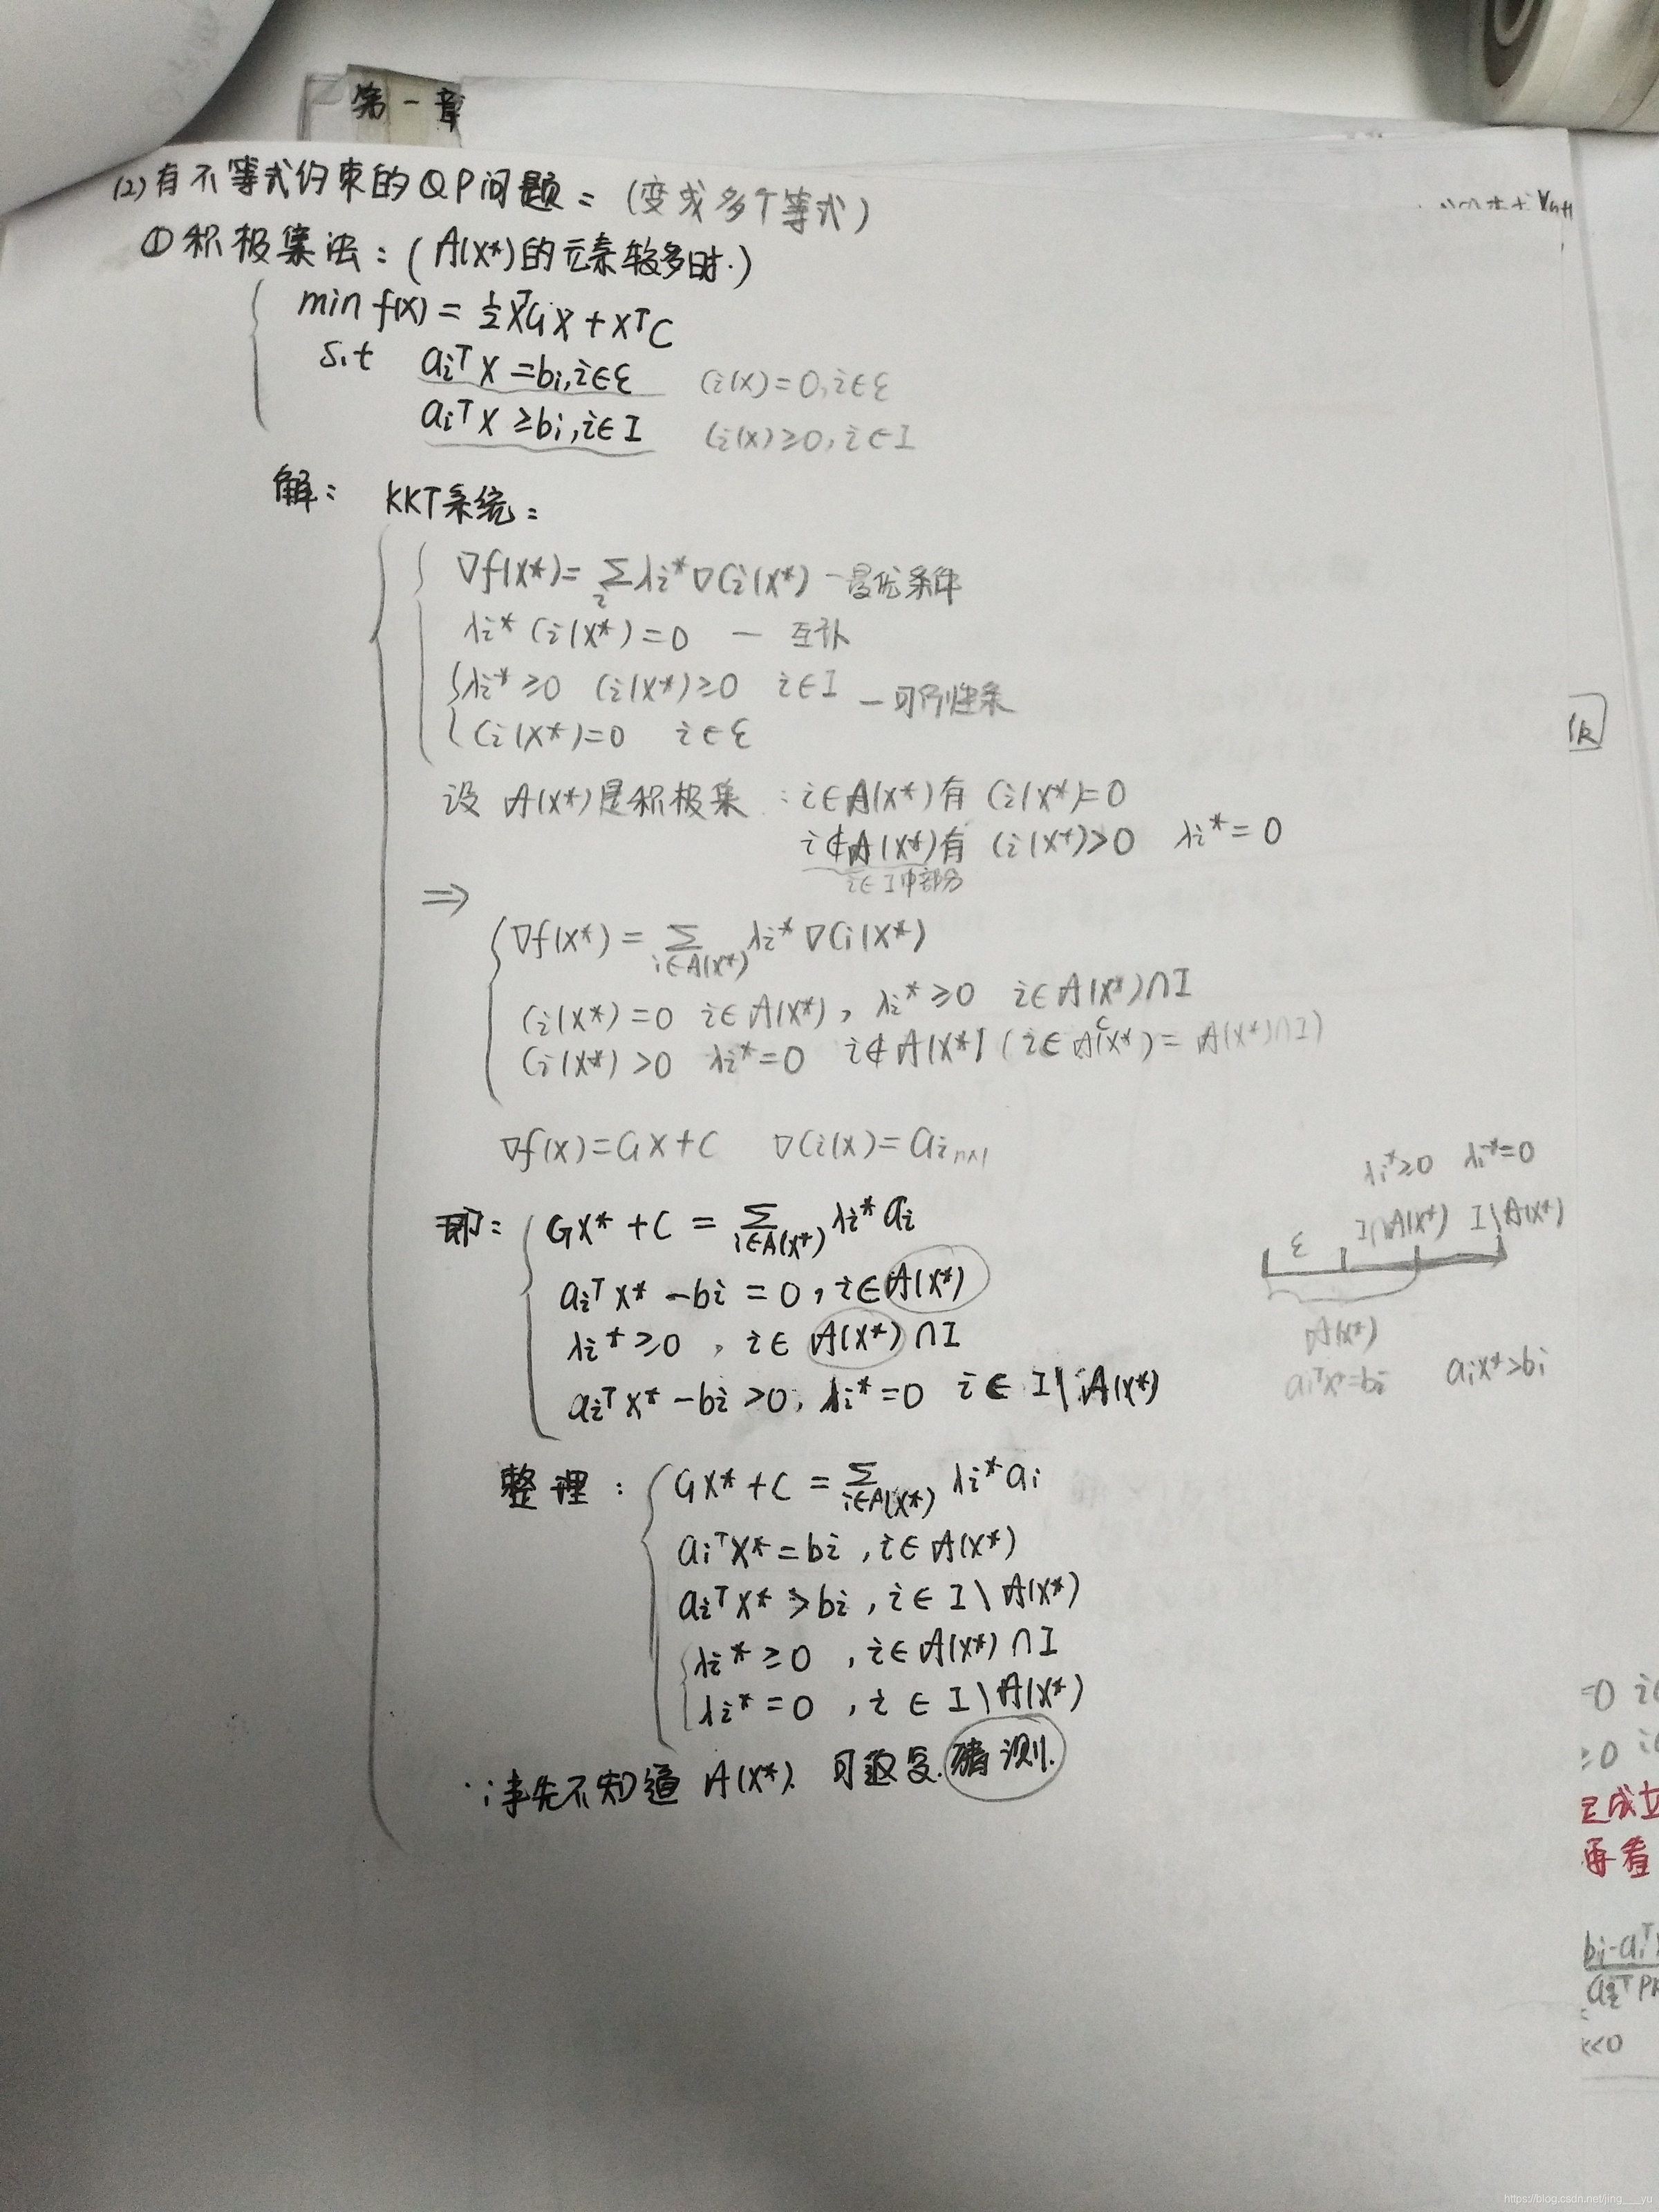 第一章
(2)有不等式约束的QP问题：(变成多个等式)
①积极集法：(A(x*)的元素较多时.)
min f(x) = ½xᵀGx + xᵀC
s.t aᵢᵀx = bᵢ, i∈ε  Cᵢ(x)=0, i∈ε
aᵢᵀx ≥ bᵢ, i∈I  Cᵢ(x)≥0, i∈I
解： KKT系统：
∇f(x*) = Σᵢ λᵢ*∇Cᵢ(x*) — 最优条件
λᵢ* Cᵢ(x*) = 0 — 互补
λᵢ* ≥0 Cᵢ(x*)≥0 i∈I — 可行性条
Cᵢ(x*)=0 i∈ε
设 A(x*)是积极集：i∈A(x*)有 Cᵢ(x*)=0
i∉A(x*)有 Cᵢ(x*)>0 λᵢ*=0
i∈I中部分
⇒
∇f(x*) = Σ_{i∈A(x*)} λᵢ* ∇Cᵢ(x*)
Cᵢ(x*)=0 i∈A(x*), λᵢ*≥0 i∈A(x*)∩I
Cᵢ(x*)>0 λᵢ*=0 i∉A(x*) (i∈Aᶜ(x*) = A(x*)∩I)
∇f(x)=Gx+C ∇Cᵢ(x)=aᵢ n×1
即： Gx*+C = Σ_{i∈A(x*)} λᵢ* aᵢ
aᵢᵀx* - bᵢ = 0, i∈A(x*)
λᵢ* ≥0, i∈A(x*)∩I
aᵢᵀx* - bᵢ >0, λᵢ*=0 i∈I\A(x*)
λᵢ*≥0 λᵢ*=0
ε I∩A(x*) I\A(x*)
A(x*)
aᵢᵀx*=bᵢ aᵢx*>bᵢ
整理： Gx*+C = Σ_{i∈A(x*)} λᵢ* aᵢ
aᵢᵀx* = bᵢ, i∈A(x*)
aᵢᵀx* > bᵢ, i∈I\A(x*)
λᵢ* ≥0, i∈A(x*)∩I
λᵢ* =0, i∈I\A(x*)
∵事先不知道 A(x*). 可反复.猜测.
=0
≥0
已成立
再看
<0
https://blog.csdn.net/jing___yu